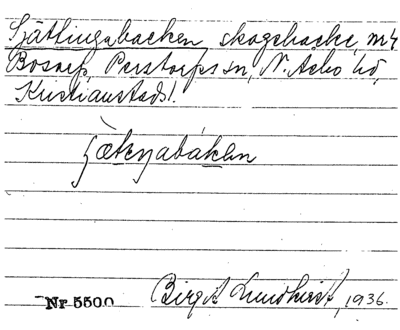 Sjättingabacken skogsbacke, m4
Bosarp, Perstorps sn, N. Åsbo hd,
Kristianstads l.
Nr 5500 Birgit Lundkvist, 1936.